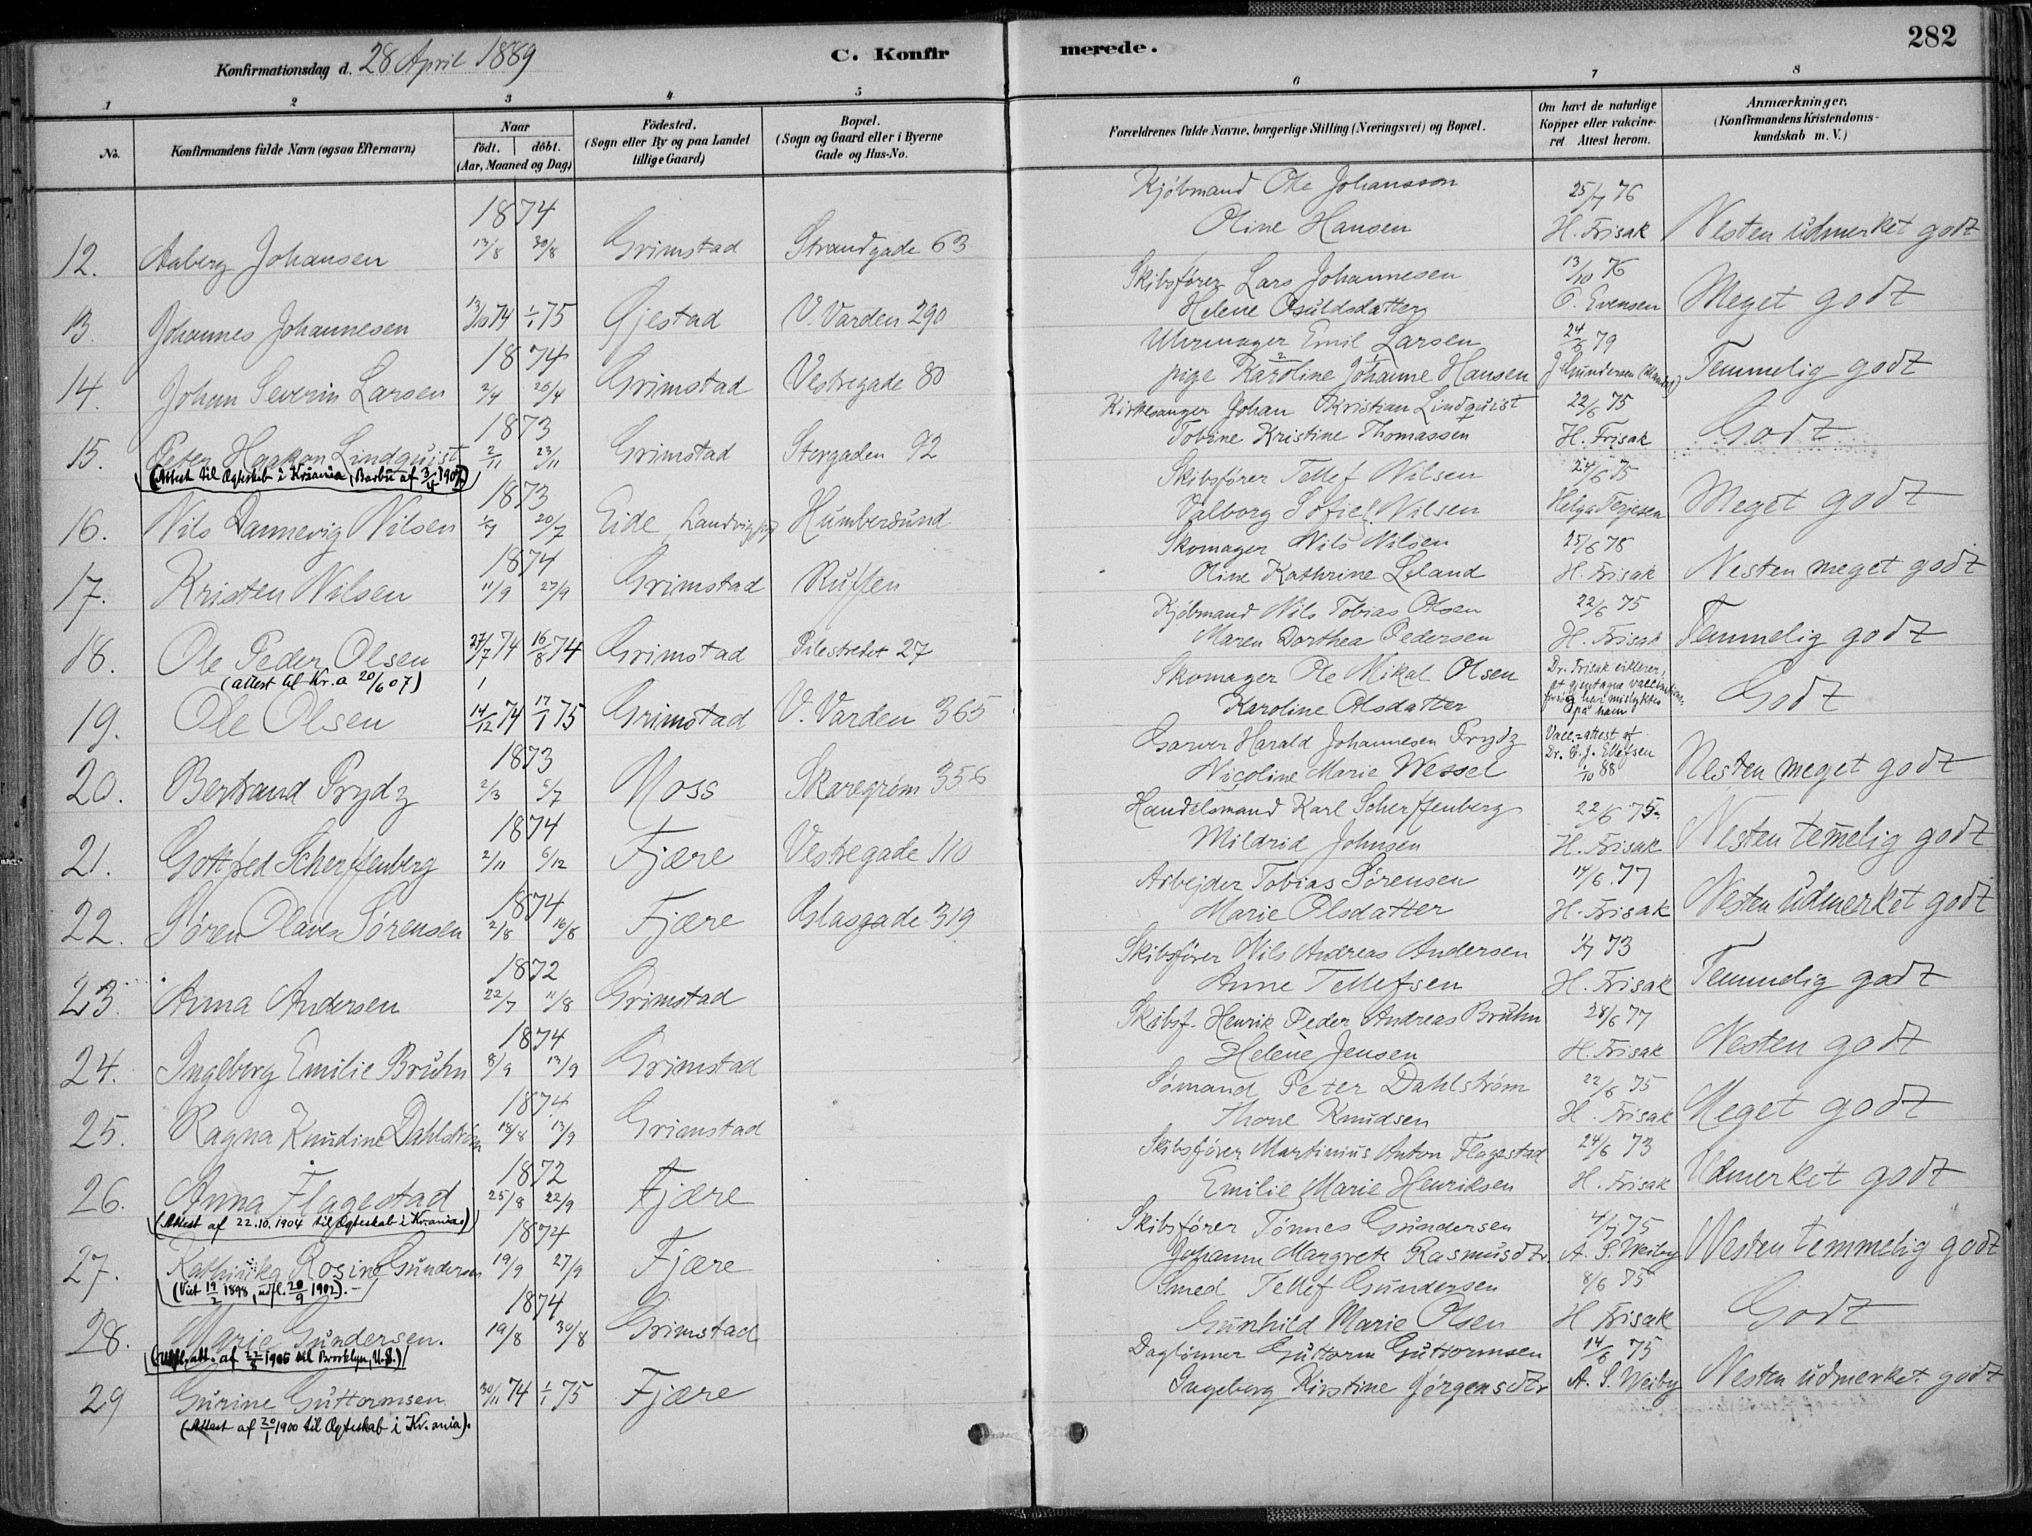 282
Konfirmationsdag d. 28 April 1889
C. Konfirmerede.
1 2 3 4 5 6 7 8
No.
Konfirmandens fulde Navn (ogsaa Efternavn)
Naar
födt. döbt.
(Aar, Maaned og Dag)
Födested.
(Sogn eller By og paa Landet
tillige Gaard)
Bopæl.
(Sogn og Gaard eller i Byerne
Gade og Hus-No.
Forældrenes fulde Navne, borgerlige Stilling (Næringsvei) og Bopæl.
Om havt de naturlige
Kopper eller vakcine-
ret Attest herom.
Anmærkninger,
(Konfirmandens Kristendoms-
kundskab m. V.)
1874 Kjøbmand Ole Johansson 25/7 76
12. Aaberg Johansen 13/8 30/8 Grimstad Strandgade 63 Oline Hansen H. Frisak Nesten udmerket godt
Skibsfører Lars Johannesen 13/10 76
13. Johannes Johannesen 13/10 74 1/1 75 Gjestad V. Varden 290 Helene Osuldsdatter O. Evensen Meget godt
1874 Uhrmager Emil Larsen 24/6 79
14. Johan Severin Larsen 2/4 26/4 Grimstad Vestregade 80 pige Karoline Johanne Hansen Temmelig godt
1873 Kirkesanger Johan Kristian Lindquist 22/6 75
15. Peter Haakon Lindquist 2/11 23/11 Grimstad Storgaden 92 Tobine Kristine Thomassen H. Frisak Godt
(Attest til Ægteskab i Kr.ania, Barbu af 3/4 1907.)
1873 Skibsfører Tellef Nilsen 24/6 75
16. Nils Dannevig Nilsen 20/7 Eide, Landvig Humbersund Valborg Sofie Nilsen Helga Terjesen Meget godt
1874 Skomager Nils Nilsen 25/6 78
17. Kristen Nilsen 11/9 27/9 Grimstad Ruffen Oline Kathrine Leland H. Frisak Nesten meget godt
Kjøbmand Nils Tobias Olsen 22/6 75
18. Ole Peder Olsen 27/7 74 16/8 74 Grimstad Pilestredet 27 Maren Dorthea Pedersen H. Frisak Temmelig godt
(attest til Kr.a 20/6 07)
Skomager Ole Mikal Olsen Dr. Frisak erklærer,
at gjentagne vaccinations-
19. Ole Olsen 14/12 74 17/1 75 Grimstad V. Varden 365 Karoline Olsdatter forsøg har mislykkes
på ham Godt
1873 Garver Harald Johannesen Prydz Vacc.=attest af
Dr. Ellefsen
20. Bertrand Prydz 2/3 5/7 Moss Skaregrøm 356 Nicoline Marie Wessel 1/10 88 Nesten meget godt
1874 Handelsmand Karl Scherffenberg 22/6 75
21. Gottfred Scherffenberg 2/11 6/12 Fjære Vestregade 110 Mildrid Johnsen H. Frisak Nesten temelig godt
1874 Arbejder Tobias Sørensen 14/6. 77
22. Søren Olaves Sørensen 2/8 16/8 Fjære Glasgade 319 Marie Olsdatter H. Frisak Nesten udmerket godt
1872 Skibsfører Nils Andreas Andersen 73
23. Anna Andersen 22/7 11/8 Grimstad Anne Tellefsen H. Frisak Temmelig godt
1874 Skibsf. Henrik Peder Andreas Bruhn 28/6 77
24. Ingeborg Emilie Bruhn 8/9 13/9 Grimstad Helene Jensen H. Frisak Nesten godt
1874 Sømand Peter Dahlstrøm 22/6 75
25. Ragna Knudine Dahlstrøm 18/8 13/9 Grimstad Thone Knudsen H. Frisak Meget godt
1872 Skibsfører Martinius Anton Flagestad 24/6 73
26. Anna Flagestad 25/8 22/9 Fjære Emilie Marie Henriksen H. Frisak Udmerket godt
(Attest af 22.10.1904 til Ægteskab i Kr.ania)
1874 Skibsfører Tønnes Gundersen 4/7 75
27. Kathinka Rosine Gundersen 19/9 27/9 Fjære Johanne Margrete Rasmusdtr. A. S. Weiby Nesten temmelig godt
(Viet 19/2 1898, udfl. 20/9 1902). –
1874 Smed Tellef Gundersen 8/6 75
28. Marie Gundersen. 19/8 30/8 Grimstad Gunhild Marie Olsen H Frisak Godt
(Udfl.att. af 1905 til Brooklyn, U.S.)
Daglønner Guttorm Guttormsen 14/6 75
29 Gurine Guttormsen 30/11 74 1/1 75 Fjære Ingeborg Kirstine Jørgensdtr A. S. Weiby Nesten udmerket godt
(Attest af 20/1 1900 til Ægteskab i Kr.ania).